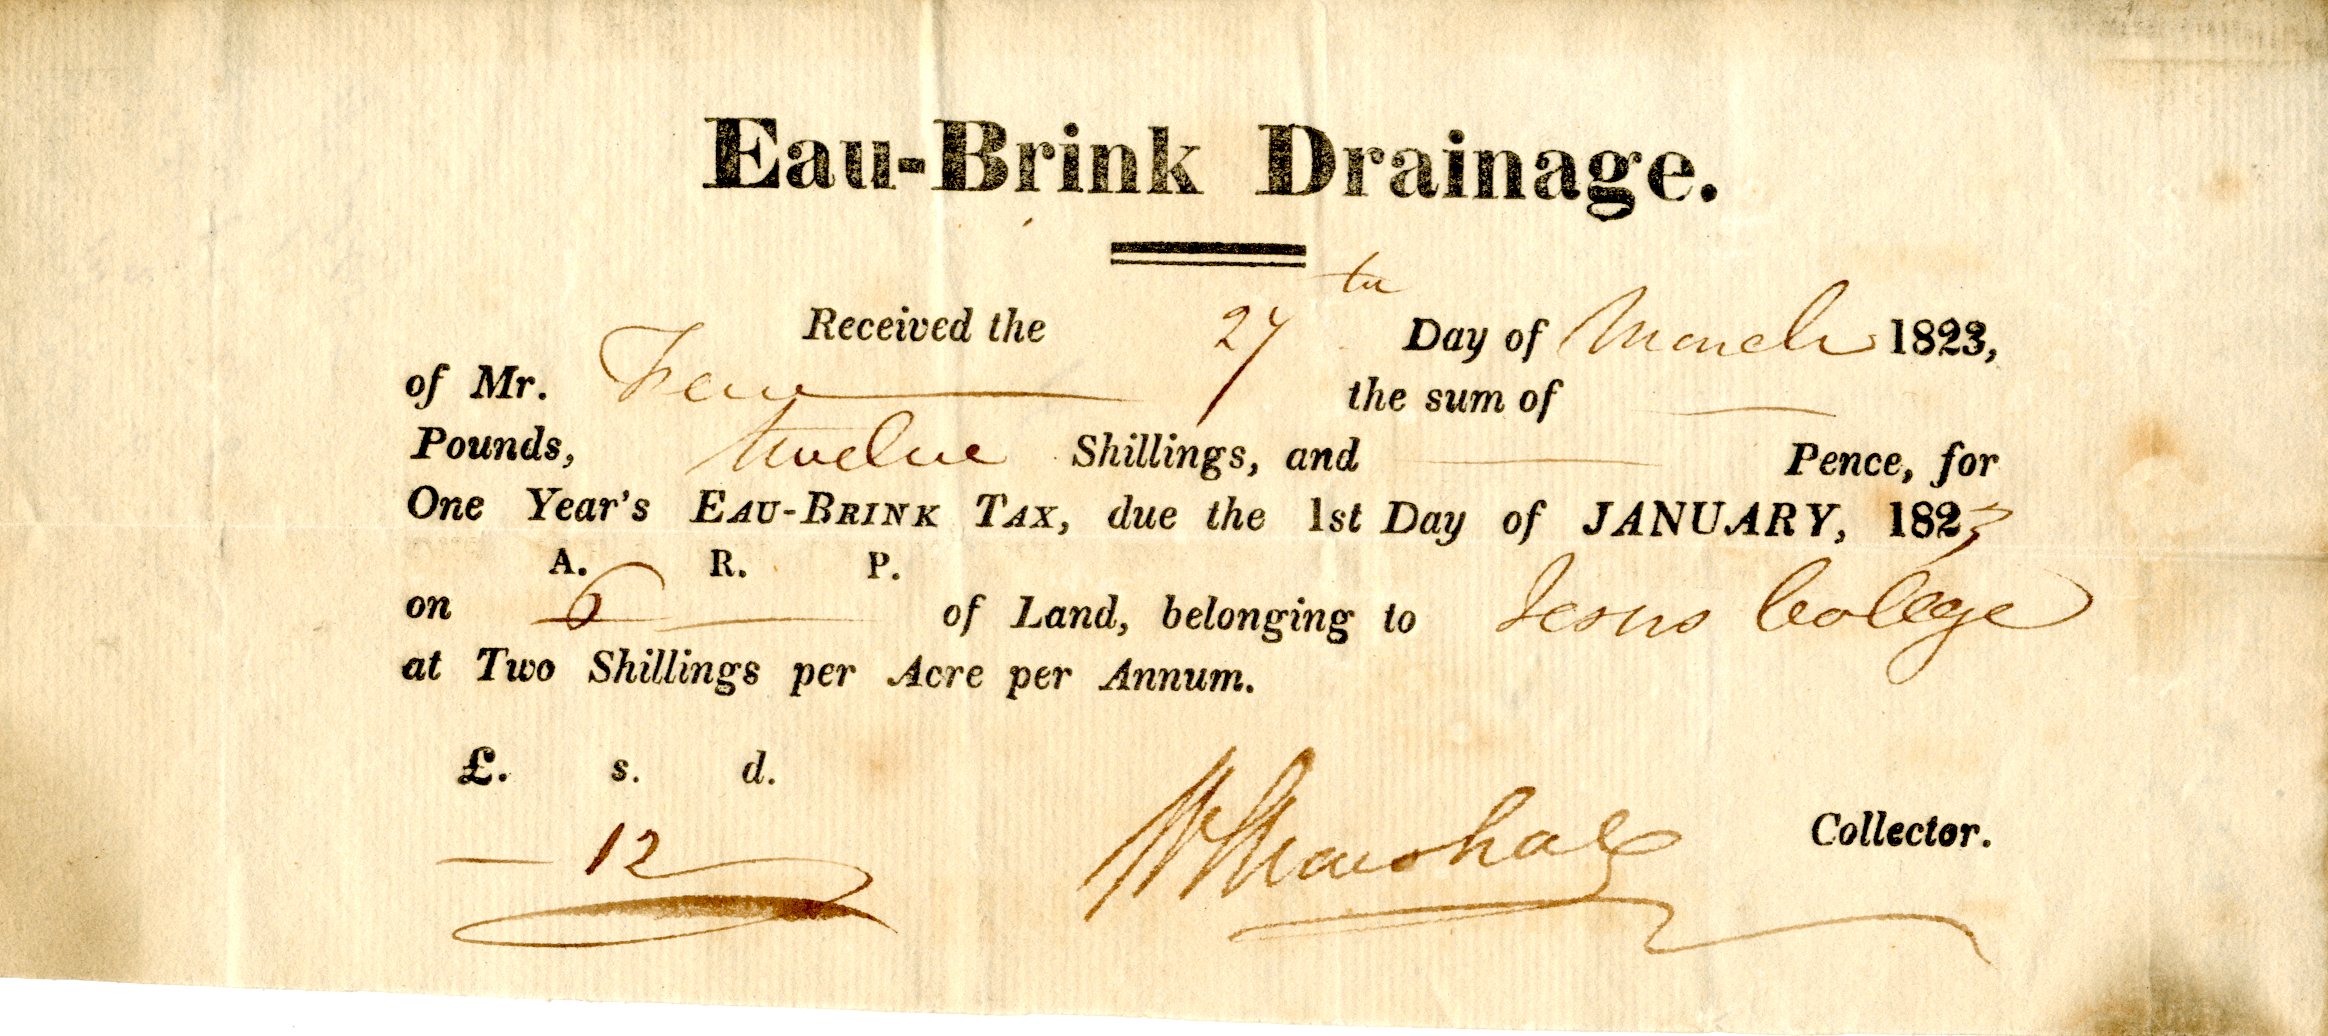 Eau-Brink Drainage.
Received the 27th Day of March 1823,
of Mr. the sum of —
Pounds, twelve Shillings, and — Pence, for
One Year's EAU-BRINK TAX, due the 1st Day of JANUARY, 1823
A. R. P.
on 6 — of Land, belonging to Jesus Colege
at Two Shillings per Acre per Annum.
£. s. d.
— 12 —
W Marshall Collector.